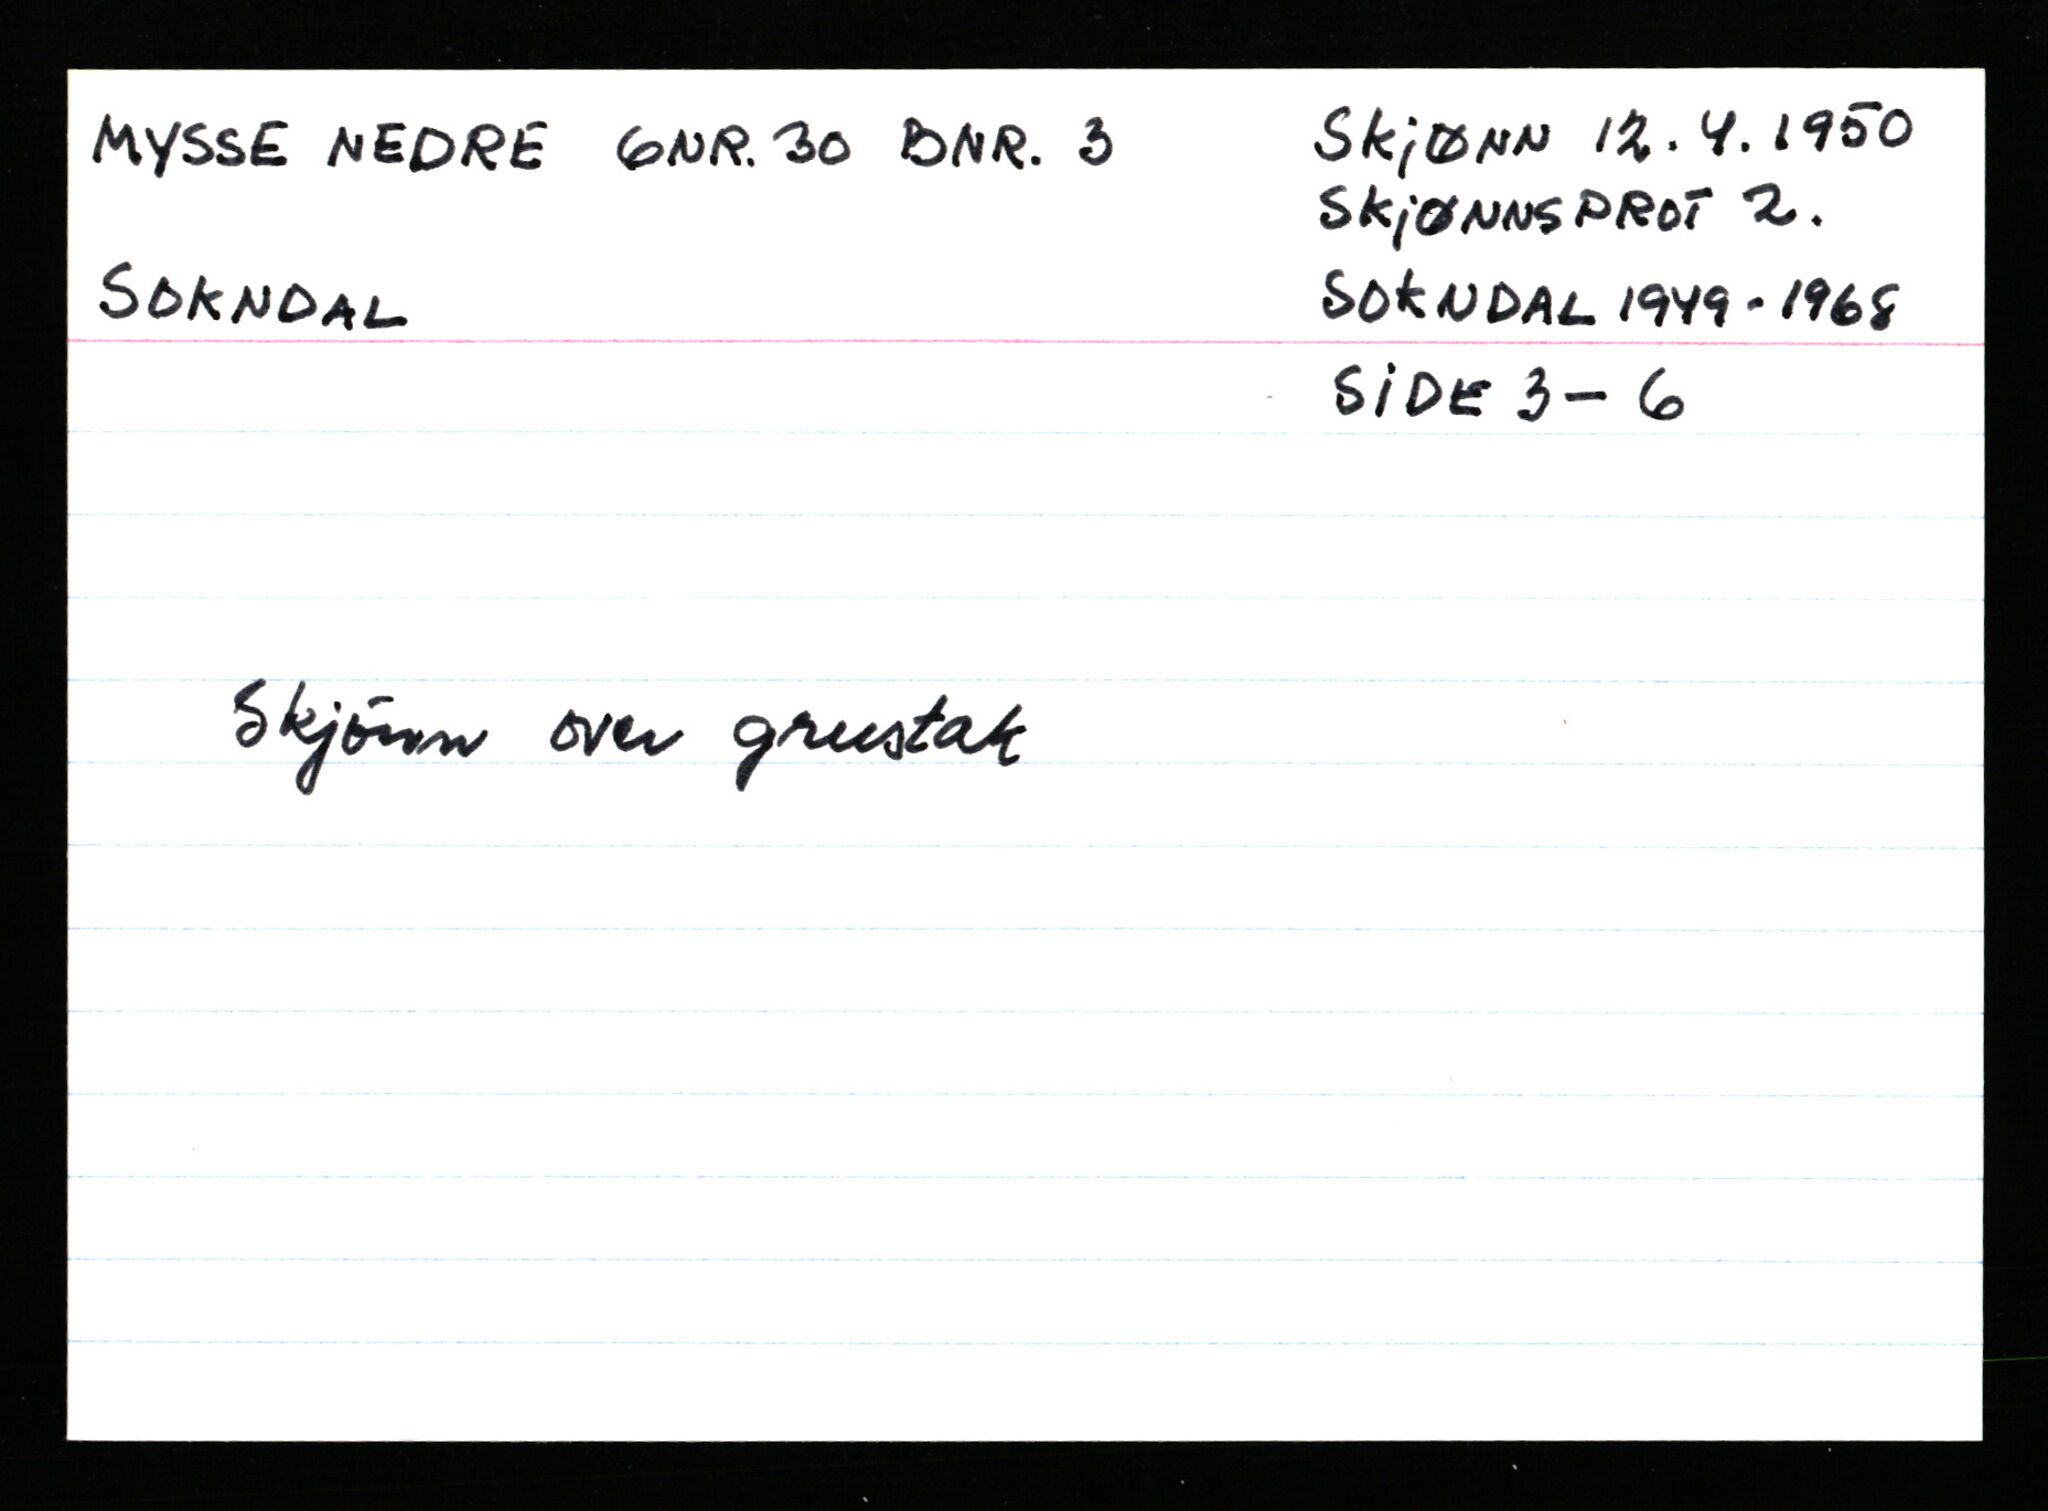 MYSSE NEDRE GNR. 30 BNR. 3
SOKNDAL
SKjØNN 12.4.1950
SKjØNNSPROT 2.
SOKNDAL 1949-1968
SiDE 3-6
Skjönn over grustak